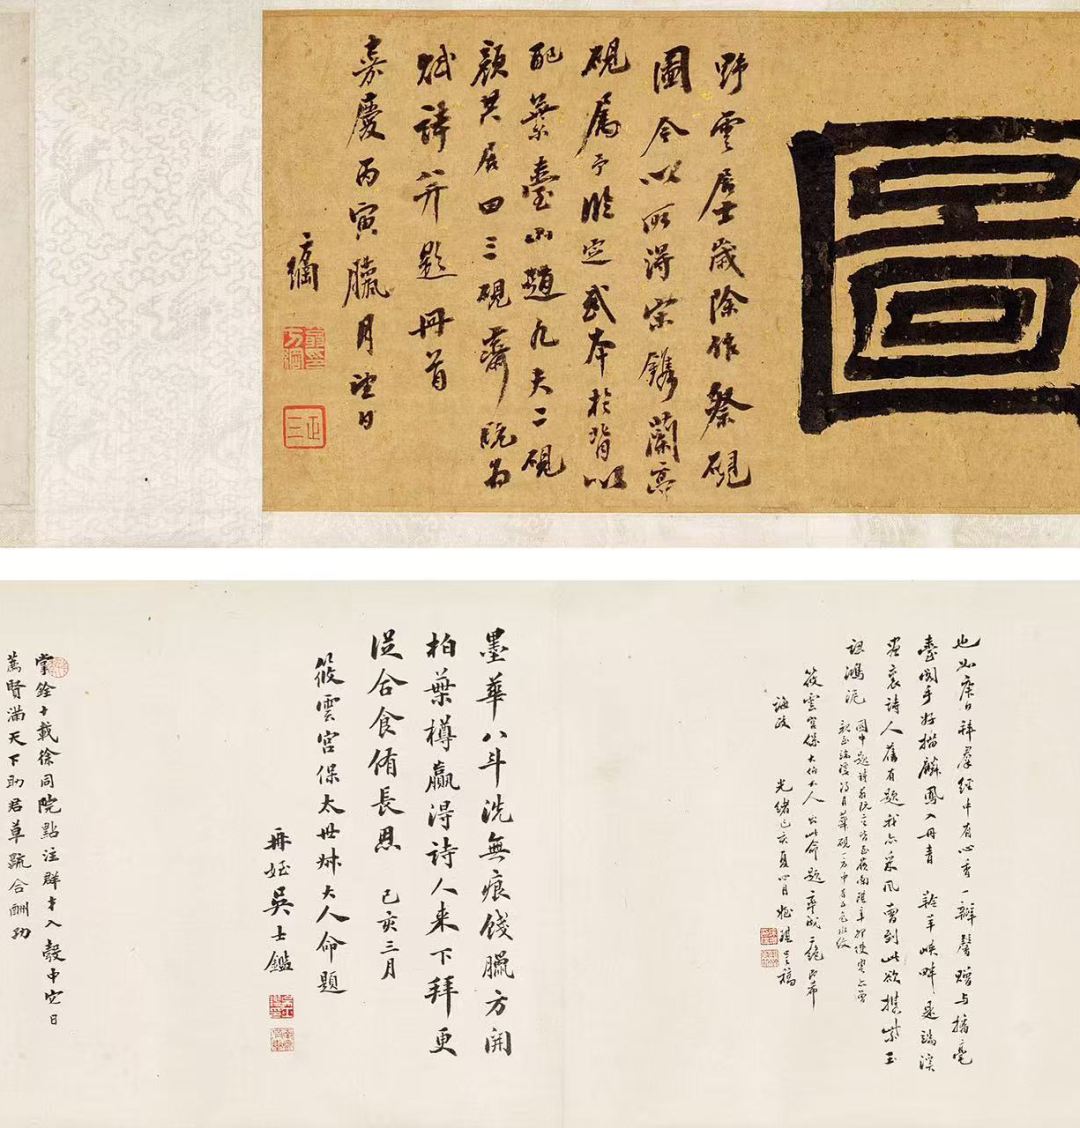 圖
野雲居士歲除作祭硯
圖今以所得宋鐫蘭亭
硯屬予臨定武本於背以
配葉臺山趙凡夫二硯
顏其居曰三硯齋既為
賦詩并題冊首
嘉慶丙寅臘月望日
方綱
也如庚日拜羣經中有心香一瓣馨贈与揩毫
臺閣手好描麟鳳入丹青 羚羊峽畔是端溪
詩人舊有題我亦采風曾到此欲攜紫玉
詛鴻泥
筱雲宮保大伯大人出此命題率成二絕即希
誨政 光緒己亥夏四月
墨華八斗洗無痕餞臘方開
柏葉樽贏得詩人来下拜更
從合食侑長恩 己亥三月
筱雲宮保太世叔大人命題
再姪吳士鑑
掌銓十載徐同院點注群才入彀中它日
薦賢滿天下助君草疏合酬功